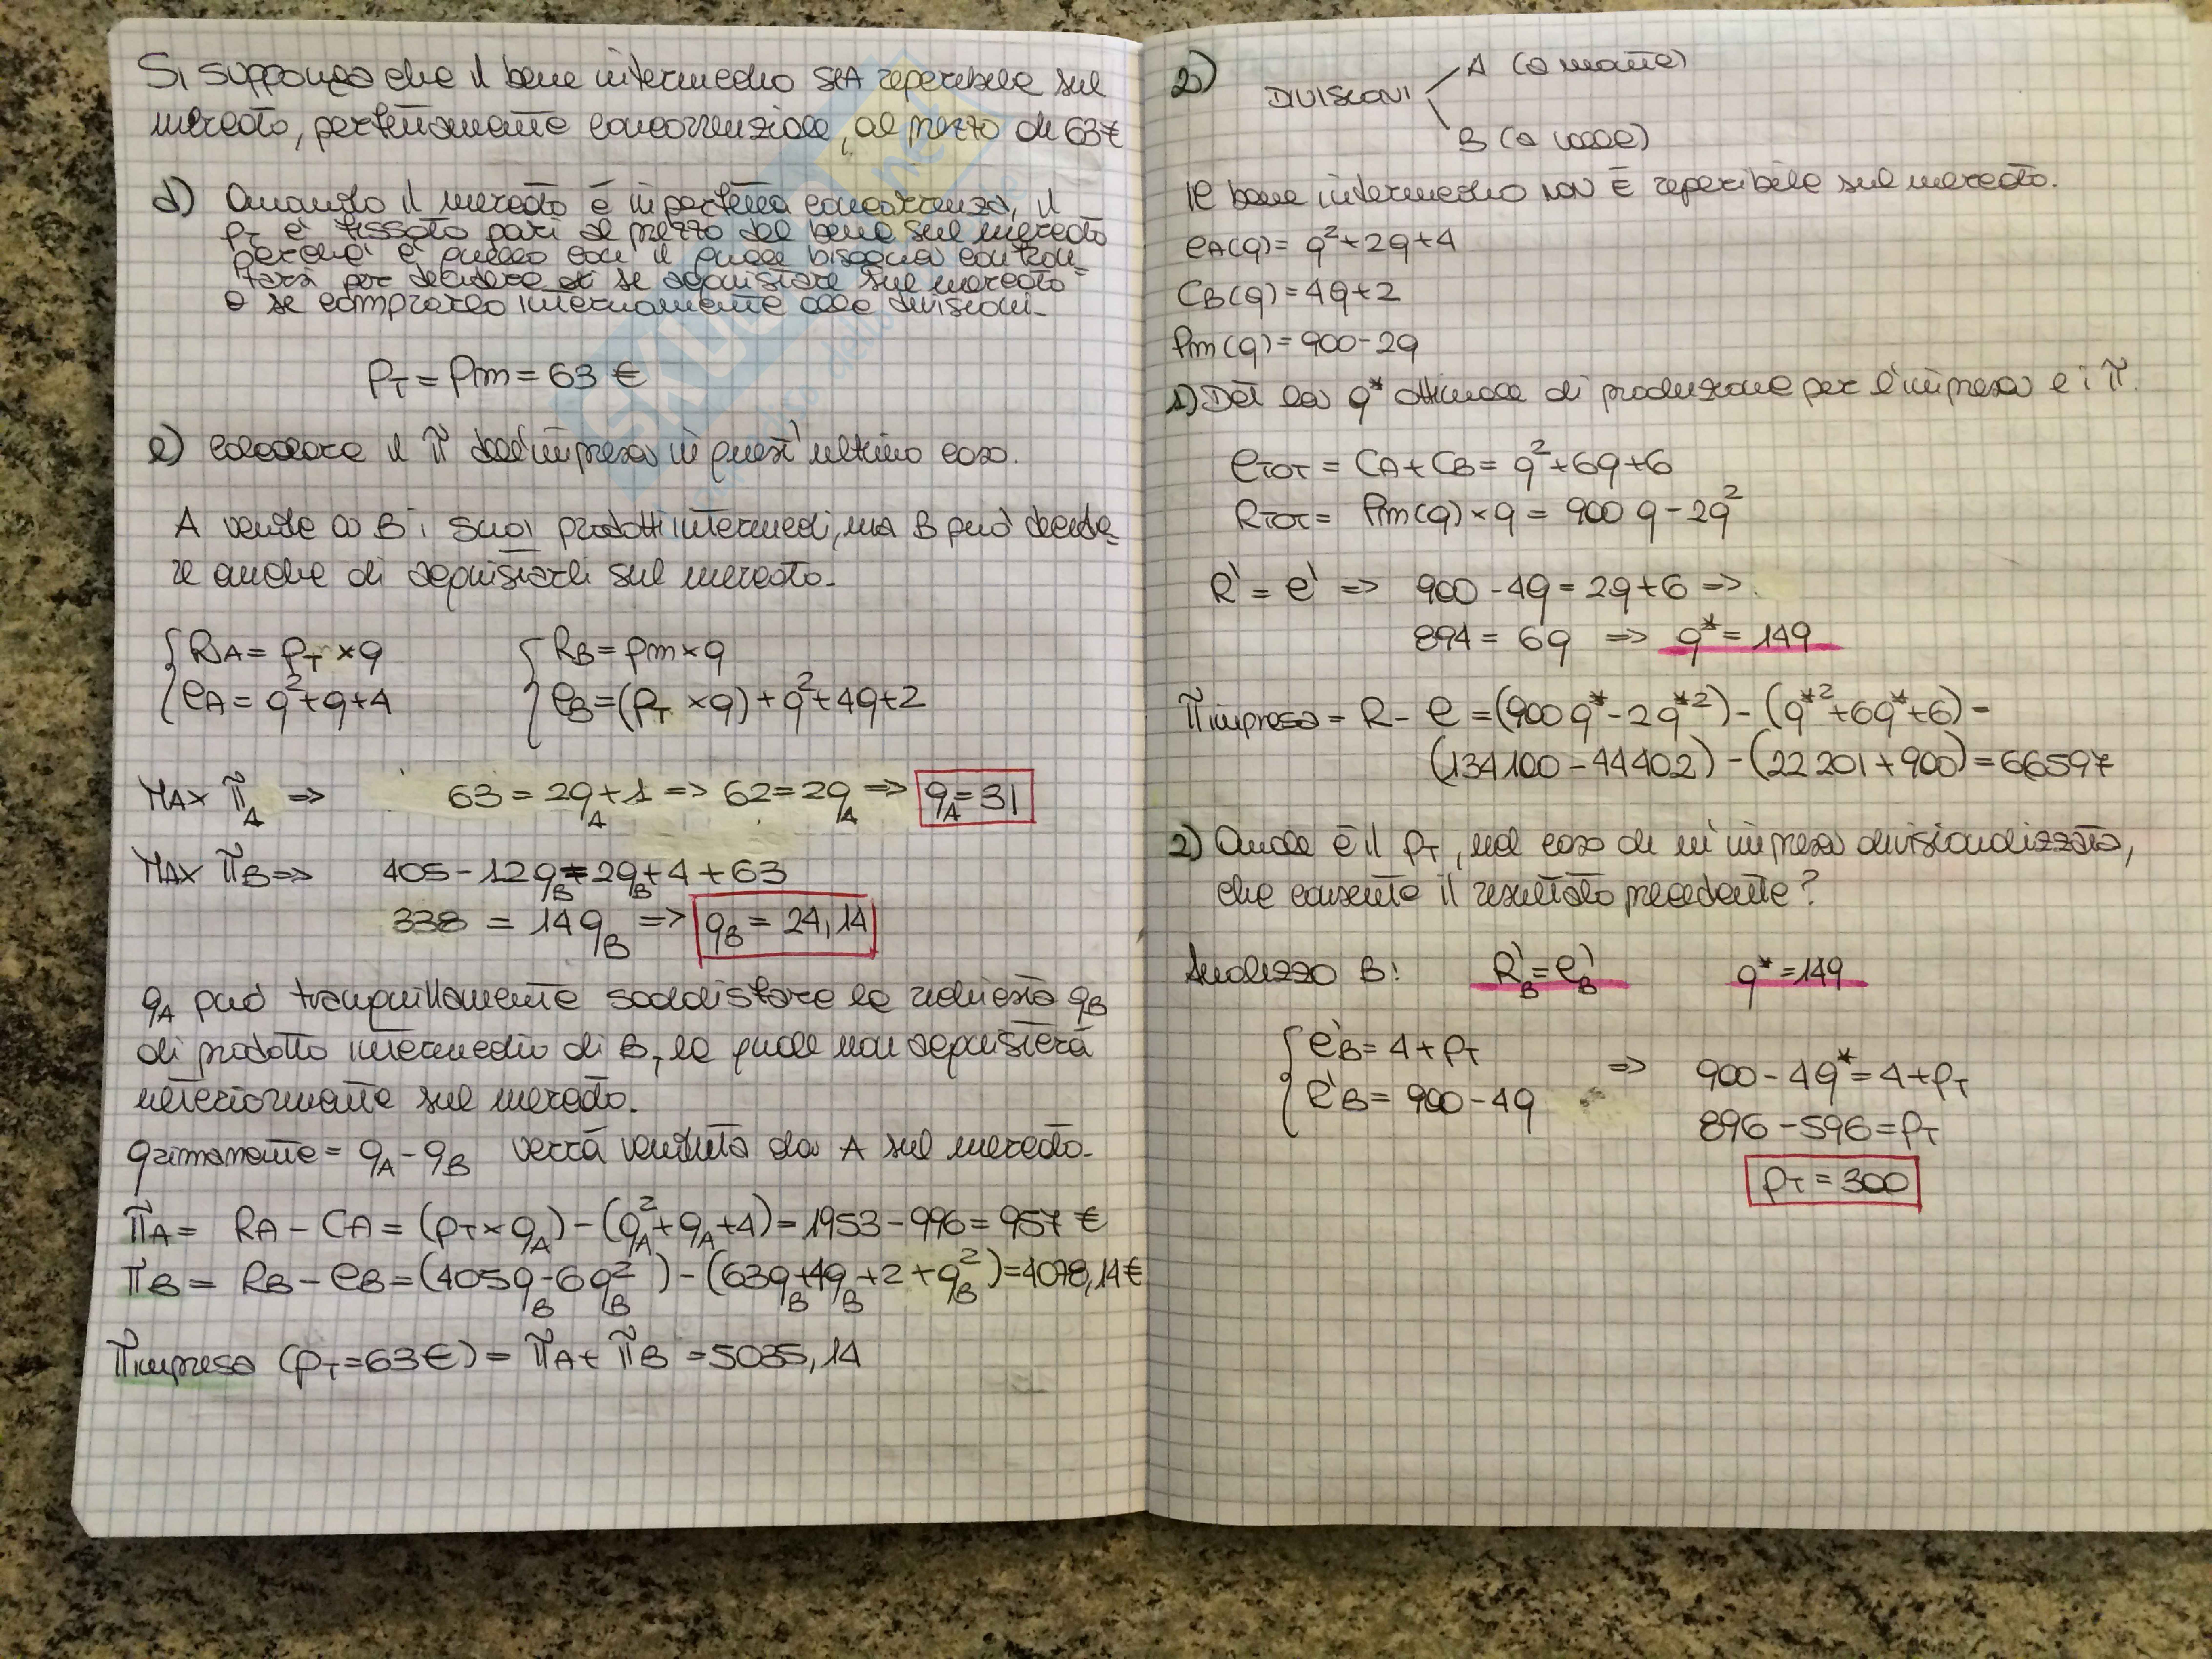 Si supponga che il bene intermedio SIA reperibile sul
mercato, perfettamente concorrenziale, al prezzo di 63€
d) Quando il mercato è in perfetta concorrenza, il
PT è fissato pari al prezzo del bene sul mercato
perché è quello con il quale bisogna confron-
tarsi per decidere se acquistare sul mercato
o se comprarlo internamente alle divisioni.
PT = Pm = 63 €
e) calcolare il π dell'impresa in quest'ultimo caso.
A vende a B i suoi prodotti intermedi, ma B può decide-
re anche di acquistarli sul mercato.
RA = PT × q
RB = Pm × q
CA = q² + q + 4
CB = (PT × q) + q² + 4q + 2
MAX πA => 63 = 2qA + 1 => 62 = 2qA => qA = 31
MAX πB => 405 - 12qB = 2qB + 4 + 63
338 = 14qB => qB = 24,14
qA può tranquillamente soddisfare la richiesta qB
di prodotto intermedio di B, la quale non acquisterà
ulteriormente sul mercato.
qrimanente = qA - qB verrà venduta da A sul mercato.
πA = RA - CA = (PT × qA) - (qA² + qA + 4) = 1953 - 996 = 957 €
πB = RB - CB = (405qB - 6qB²) - (63qB + 4qB + 2 + qB²) = 4078,14€
πimpresa (PT = 63€) = πA + πB = 5035,14
2) DIVISIONI
A (a monte)
B (a valle)
Il bene intermedio NON È reperibile sul mercato.
CA(q) = q² + 2q + 4
CB(q) = 4q + 2
Pm(q) = 900 - 2q
1) Det la q* ottimale di produzione per l'impresa e i π.
CTOT = CA + CB = q² + 6q + 6
RTOT = Pm(q) × q = 900q - 2q²
R' = C' => 900 - 4q = 2q + 6 =>
894 = 6q => q* = 149
πimpresa = R - C = (900q* - 2q*²) - (q*² + 6q* + 6) =
(134100 - 44402) - (22201 + 900) = 66597
2) Quale è il PT, nel caso di un'impresa divisionalizzata,
che consente il risultato precedente?
Analizzo B: R'B = C'B q* = 149
C'B = 4 + PT
R'B = 900 - 4q
=> 900 - 4q* = 4 + PT
896 - 596 = PT
PT = 300